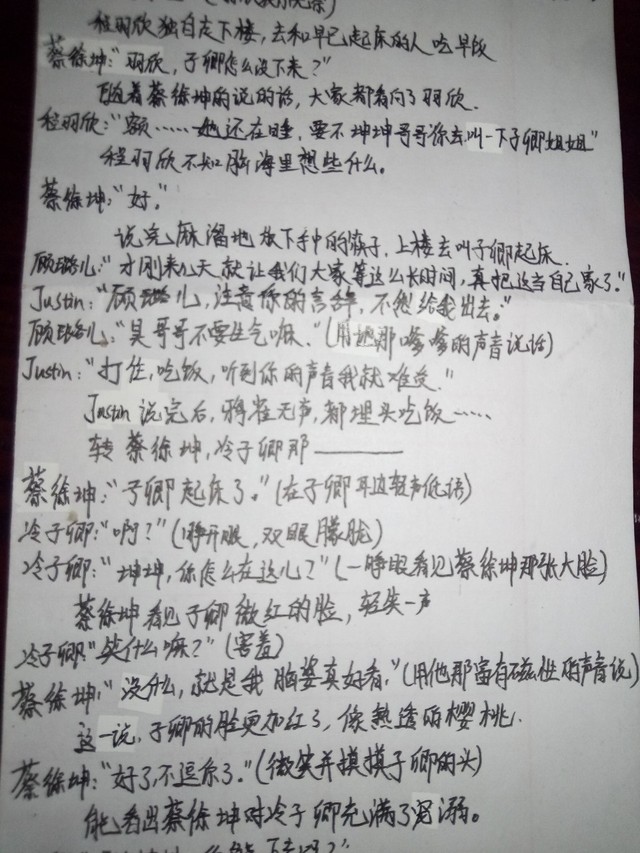 程羽欣独自左下楼，去和早已起床的人吃早饭
蔡徐坤：“羽欣，子卿怎么没下来？”
随着蔡徐坤的说的话，大家都看向了羽欣．
程羽欣：“额……她还在睡，要不坤坤哥哥你去叫一下子卿姐姐”
程羽欣不知脑海里想些什么。
蔡徐坤：“好。”
说完麻溜地放下手中的筷子，上楼去叫子卿起床．
顾璐儿：“才刚来几天就让我们大家等这么长时间，真把这当自己家了。”
Justin：“顾璐儿，注意你的言辞，不然给我出去。”
顾璐儿：“昊哥哥不要生气嘛．”（用她那嗲嗲的声音说话）
Justin：“打住，吃饭，听到你的声音我就难受．”
Justin说完后，鸦雀无声，都埋头吃饭……
转 蔡徐坤，冷子卿那———
蔡徐坤：“子卿起床了。”（在子卿耳边轻声低语）
冷子卿：“啊？”（睁开眼，双眼朦胧）
冷子卿：“坤坤，你怎么在这儿？”（一睁眼看见蔡徐坤那张大脸）
蔡徐坤看见子卿微红的脸，轻笑一声
冷子卿：“笑什么嘛？”（害羞）
蔡徐坤：“没什么，就是我脑婆真好看．”（用他那富有磁性的声音说）
这一说，子卿的脸更加红了，像熟透的樱桃．
蔡徐坤：“好了不逗你了。”（微笑并摸摸子卿的头）
能看出蔡徐坤对冷子卿充满了宠溺。